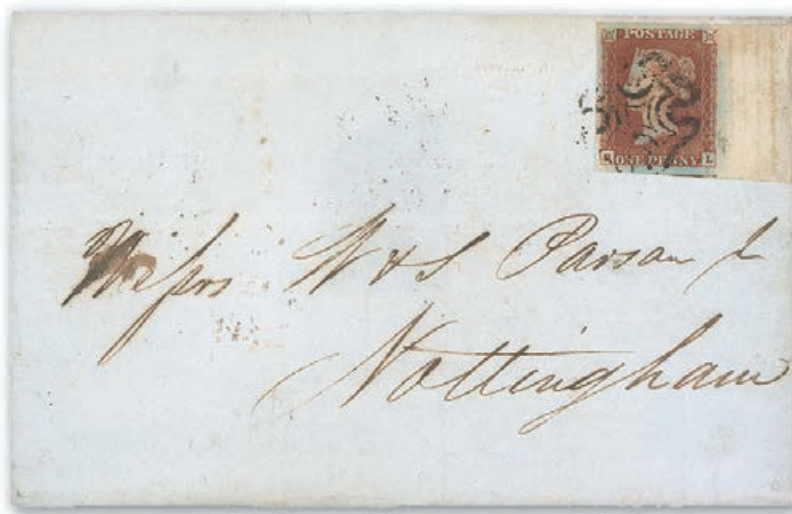 POSTAGE
ONE PENNY
L
Messrs W & S Parson
Nottingham